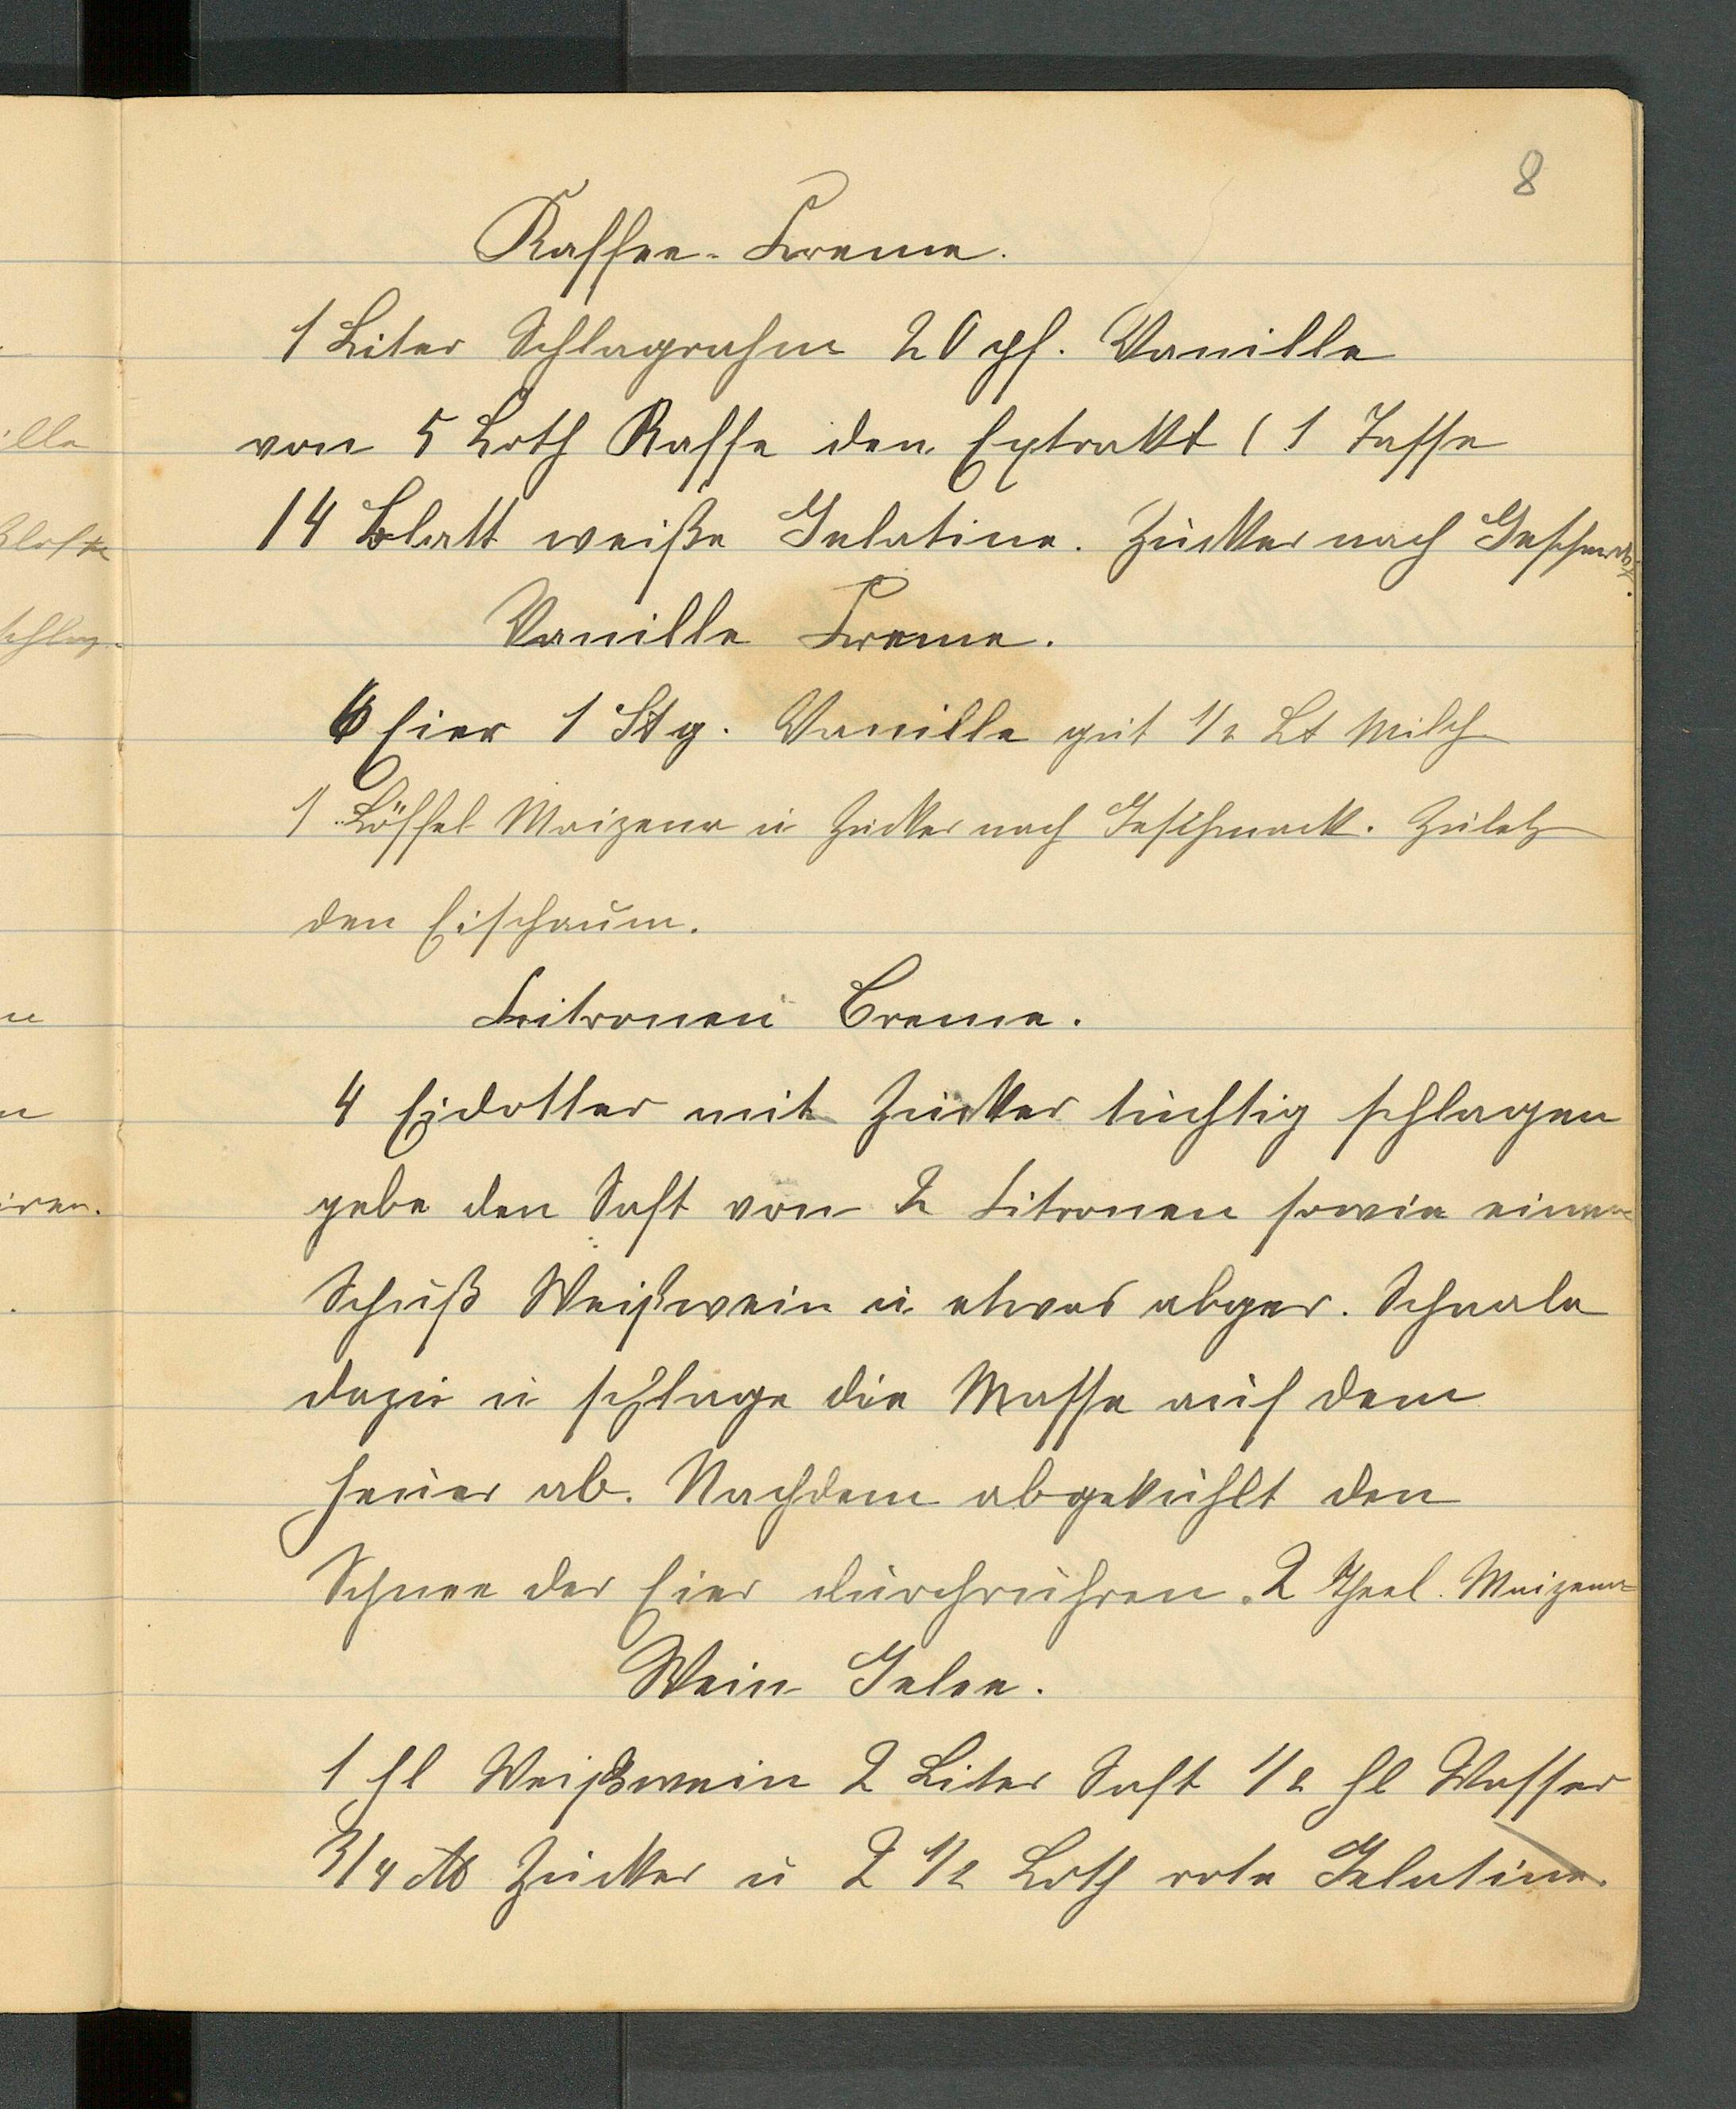 8
Kaffee-Creme.
1 Liter Schlagrahm 20 pf. Vanille
von 5 Loth Kaffe den Extrakt (1 Tasse
14 Blatt weiße Gelatine. Zucker nach Geschmack.
Vanille Creme.
6 Eier 1 Stg. Vanille gut 1/2 Lt Milch
1 Löffel Maizena u Zucker nach Geschmack. Zuletz
den Eischaum.
Citronen Creme.
4 Eidotter mit Zucker tüchtig schlagen
gebe den Saft von 2 Citronen sowie einen
Schuß Weißwein u etwas abger. Schaale
dazu u schlage die Masse auf dem
Feuer ab. Nachdem abgekühlt den
Schnee der Eier durchrühren. 2 Theel. Maizena
Wein Gelee.
1 Fl Weißwein 2 Liter Saft 1/2 Fl Wasser
3/4 ℔ Zucker u 2 1/2 Loth rote Gelatine.